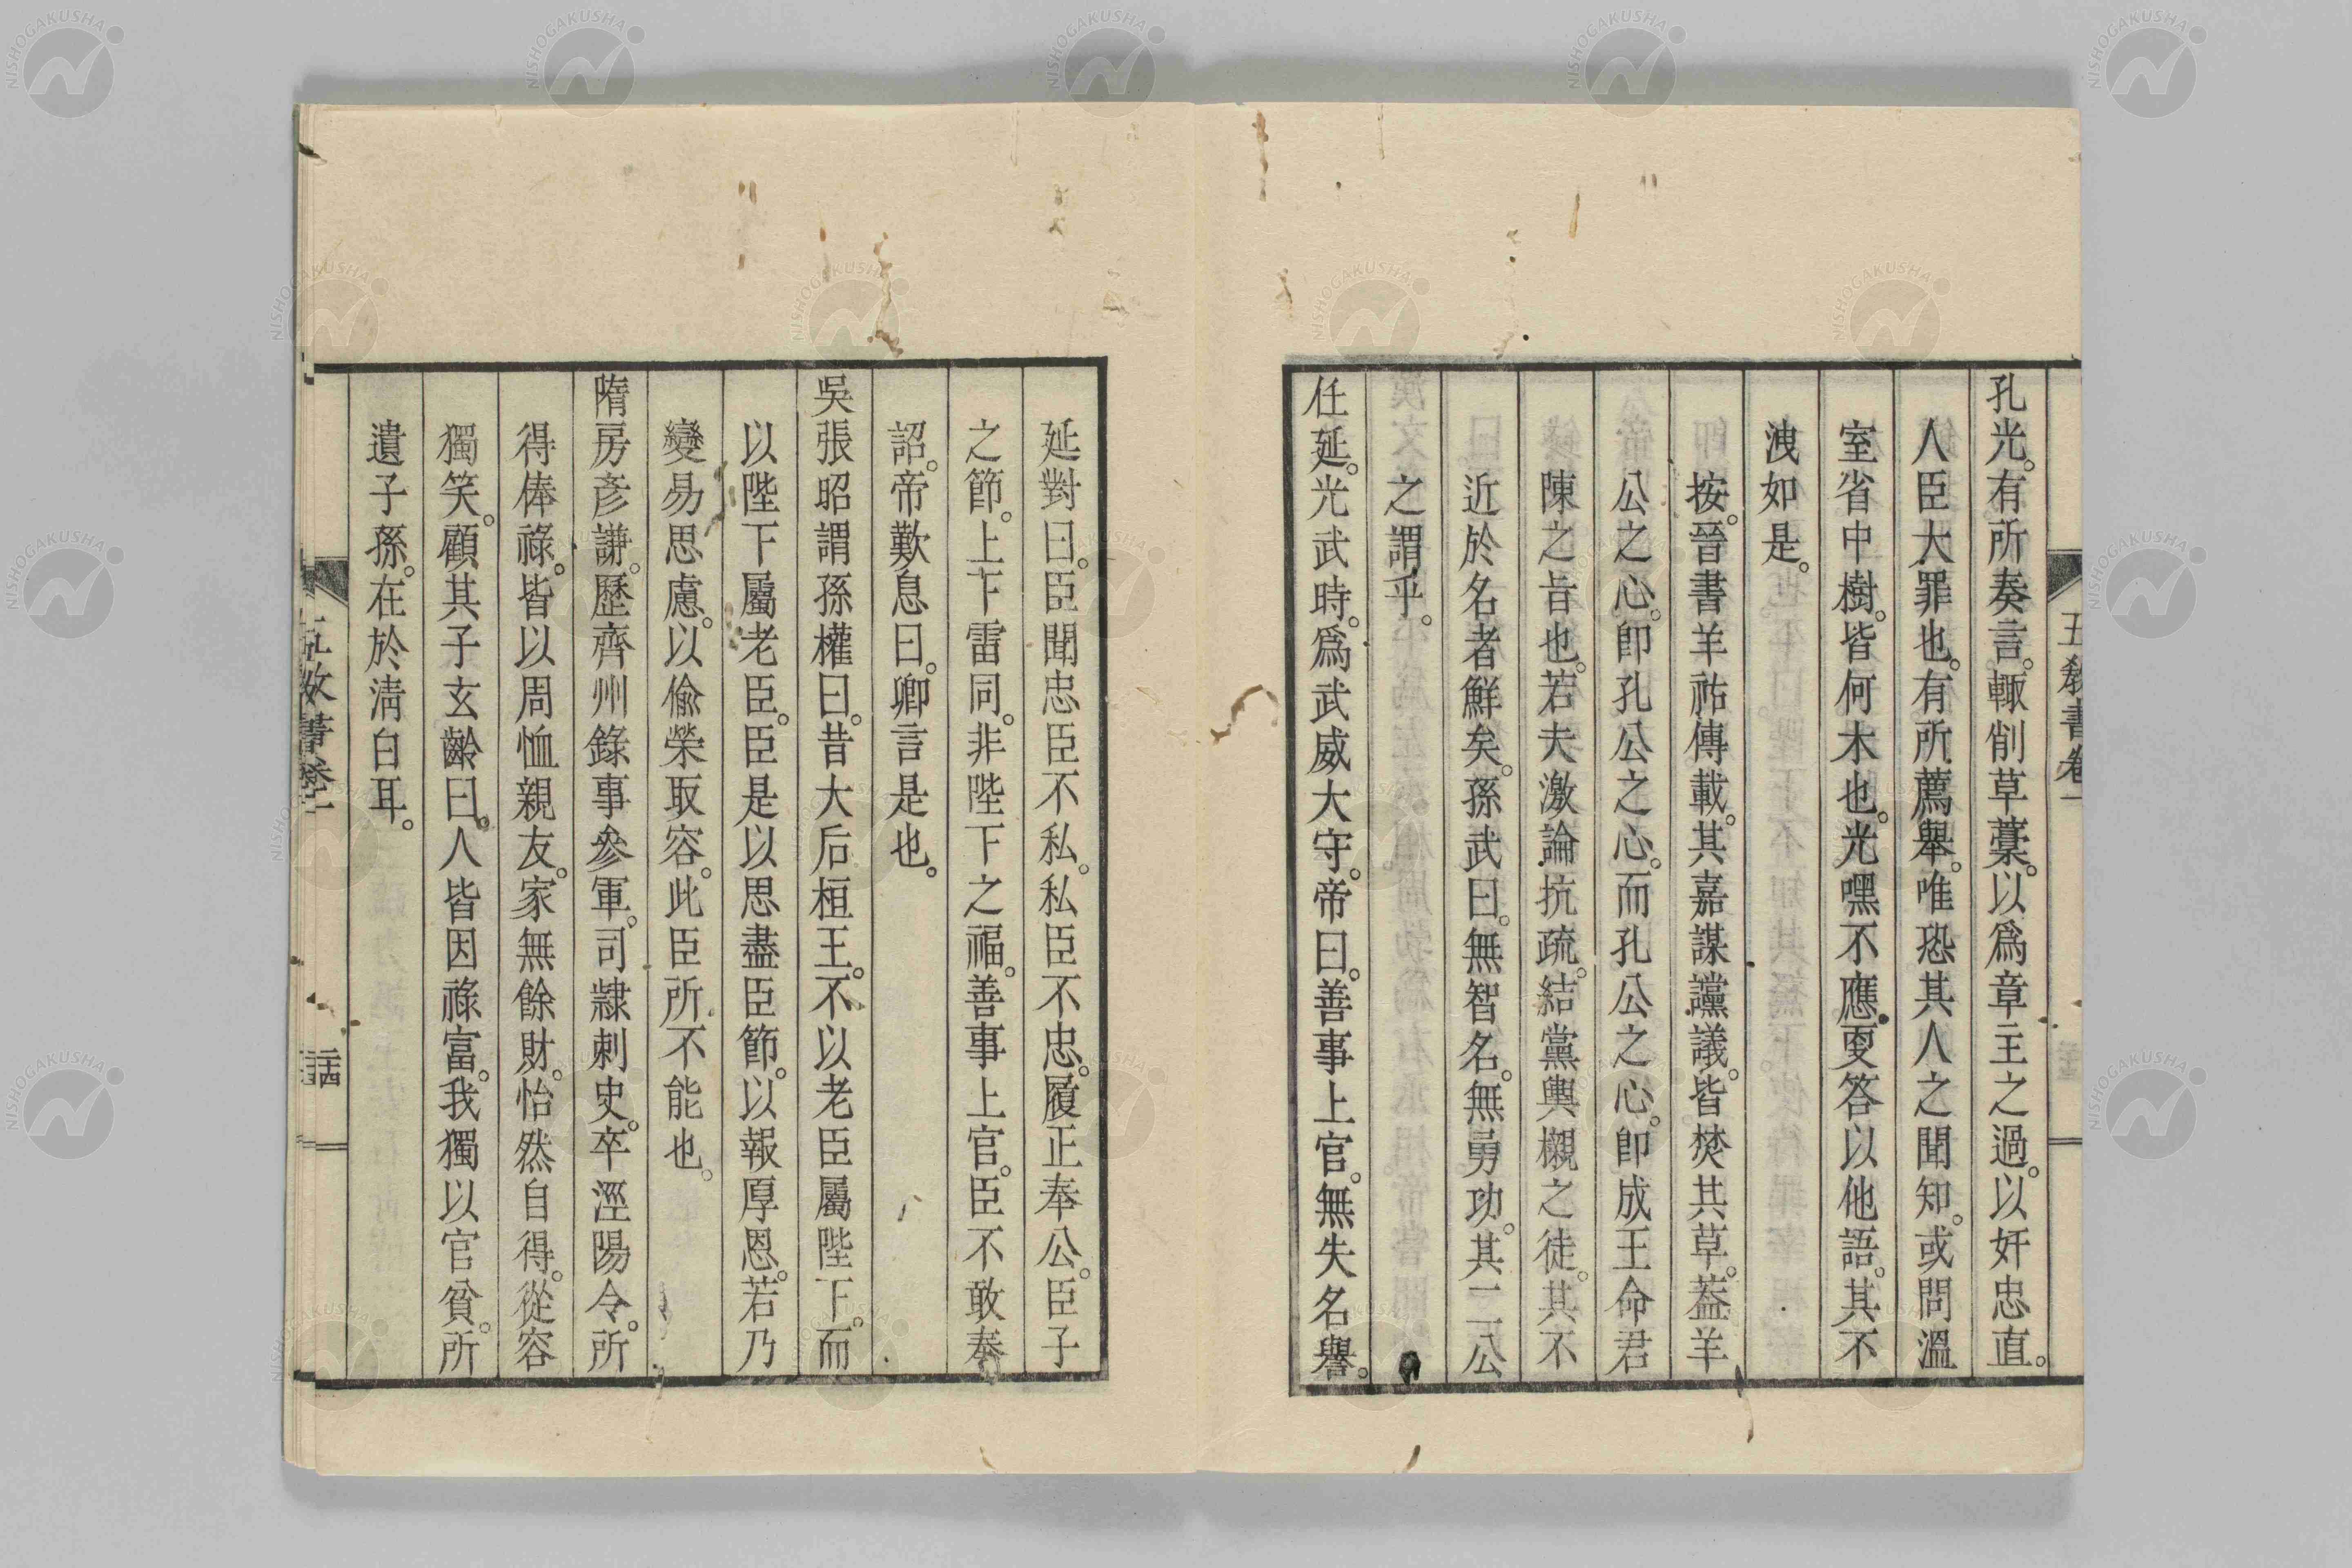 五敎書卷一
孔光。有所奏言。輙削草藁。以爲章主之過。以奸忠直。
人臣大罪也。有所薦舉。唯恐其人之聞知。或問溫
室省中樹。皆何木也。光嘿不應。更答以他語。其不
洩如是。
按。晉書羊祜傳載。其嘉謀讜議。皆焚其草。葢羊
公之心。卽孔公之心。而孔公之心。卽成王命君
陳之旨也。若夫激論抗疏。結黨輿櫬之徒。其不
近於名者鮮矣。孫武曰。無智名。無勇功。其二公
之謂乎。
任延。光武時。爲武威大守。帝曰。善事上官。無失名譽。
延對曰。臣聞忠臣不私。私臣不忠。履正奉公。臣子
之節。上下雷同。非陛下之福。善事上官。臣不敢奉
詔。帝歎息曰。卿言是也。
吳張昭謂孫權曰。昔大后桓王。不以老臣屬陛下。而
以陛下屬老臣。臣是以思盡臣節。以報厚恩。若乃
變易思慮。以偸榮取容。此臣所不能也。
隋房彥謙。歷齊州錄事參軍。司隸刺史。卒涇陽令。所
得俸祿。皆以周恤親友。家無餘財。怡然自得。從容
獨笑。顧其子玄齡曰。人皆因祿富。我獨以官貧。所
遺子孫。在於淸白耳。
NISHOGAKUSHA